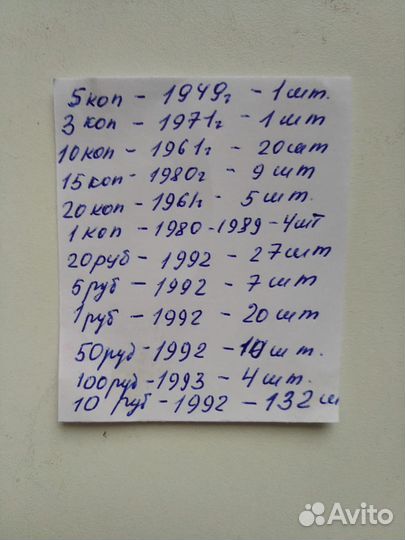 5 коп - 1949г - 1 шт.
3 коп - 1971г - 1 шт
10 коп - 1961г - 20 шт
15 коп - 1980г - 9 шт
20 коп - 1961г - 5 шт.
1 коп - 1980 - 1989 - 4 шт
20 руб - 1992 - 27 шт
5 руб - 1992 - 7 шт
1 руб - 1992 - 20 шт
50 руб - 1992 - шт.
100 руб - 1993 - 4 шт.
10 руб - 1992 - 132 ш
Avito